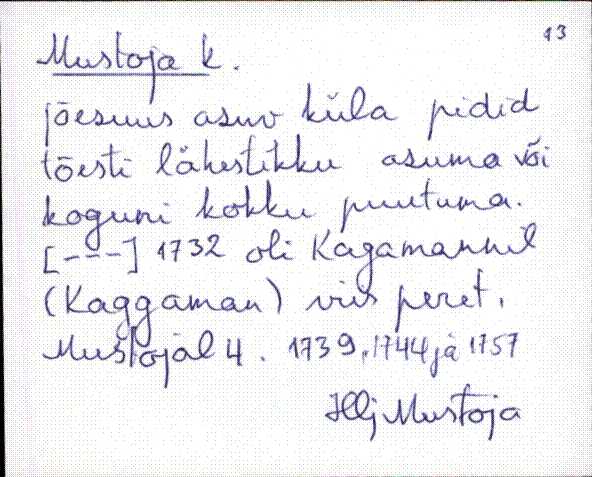 13
Mustoja k.
jõesuus asuv küla pidid
tõesti lähestikku asuma või
koguni kokku puutuma.
[---] 1732 oli Kagamannil
(Kaggaman) viis peret,
Mustojal 4. 1739, 1744 ja 1757
Mustoja